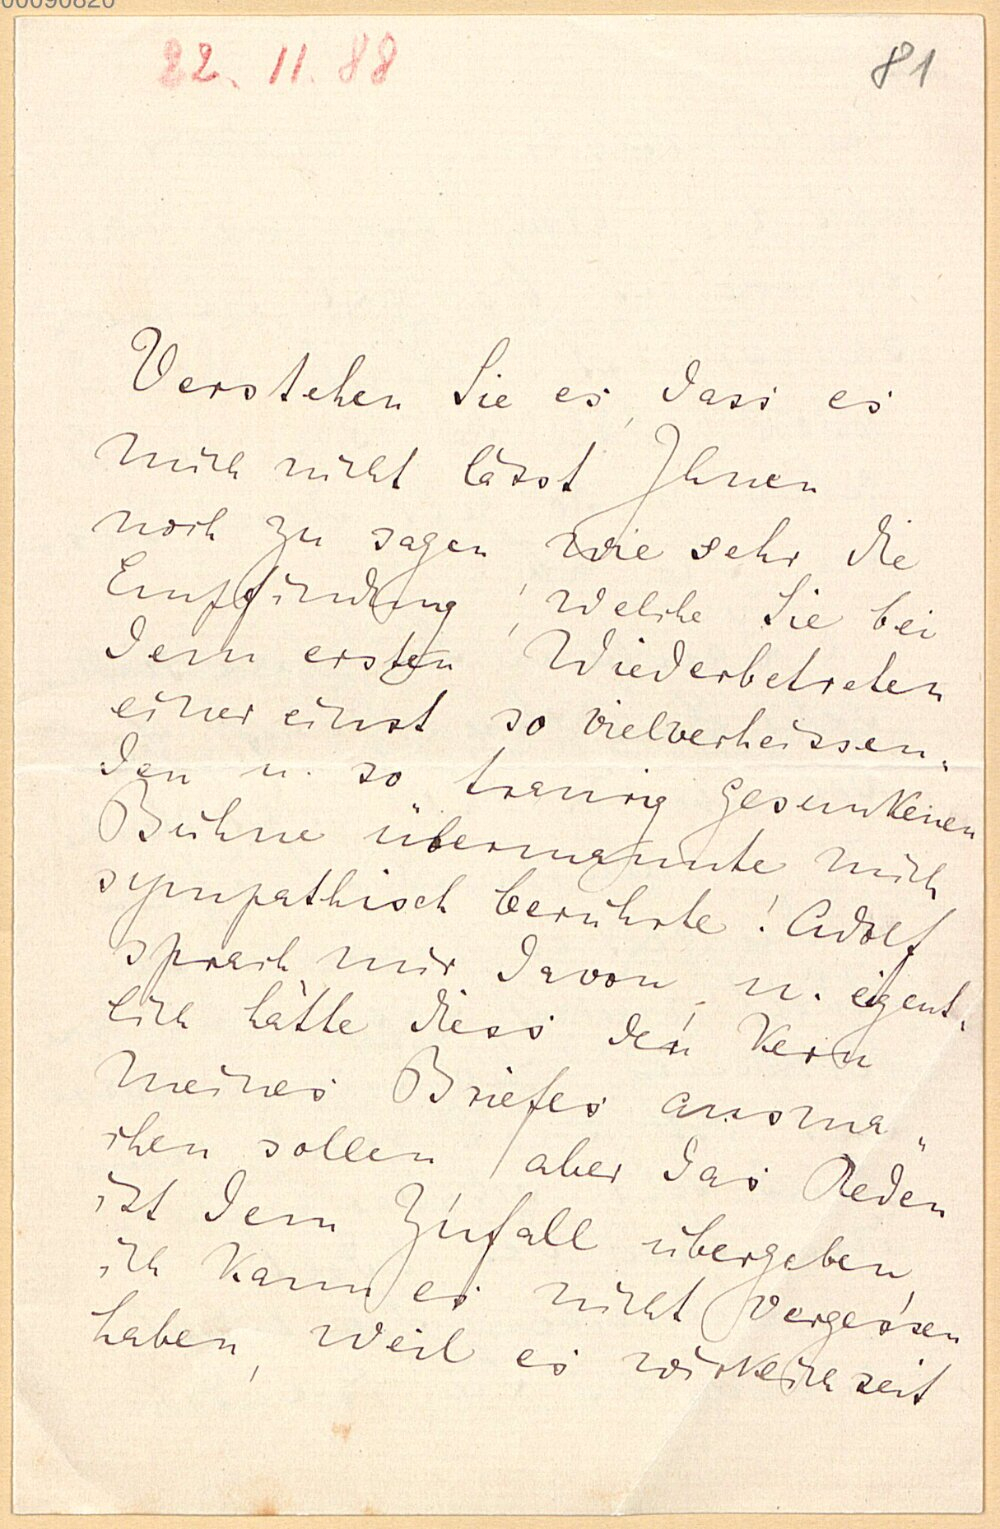 00090820
22. 11. 88
81
Verstehen Sie es, dass es
mich nicht lässt Ihnen
noch zu sagen wie sehr die
Empfindung, welche Sie bei
dem ersten Wiederbetreten
einer einst so vielverheissen„
den u. so traurig gesunkenen
Bühne übermannte mich
sympathisch berührte! Adolf
sprach mir davon, u. eigent„
lich hätte diess den Kern
meines Briefes ausma„
chen sollen, aber das Reden
ist dem Zufall übergeben
ich kann es nicht vergessen
haben, weil es wirklich seit